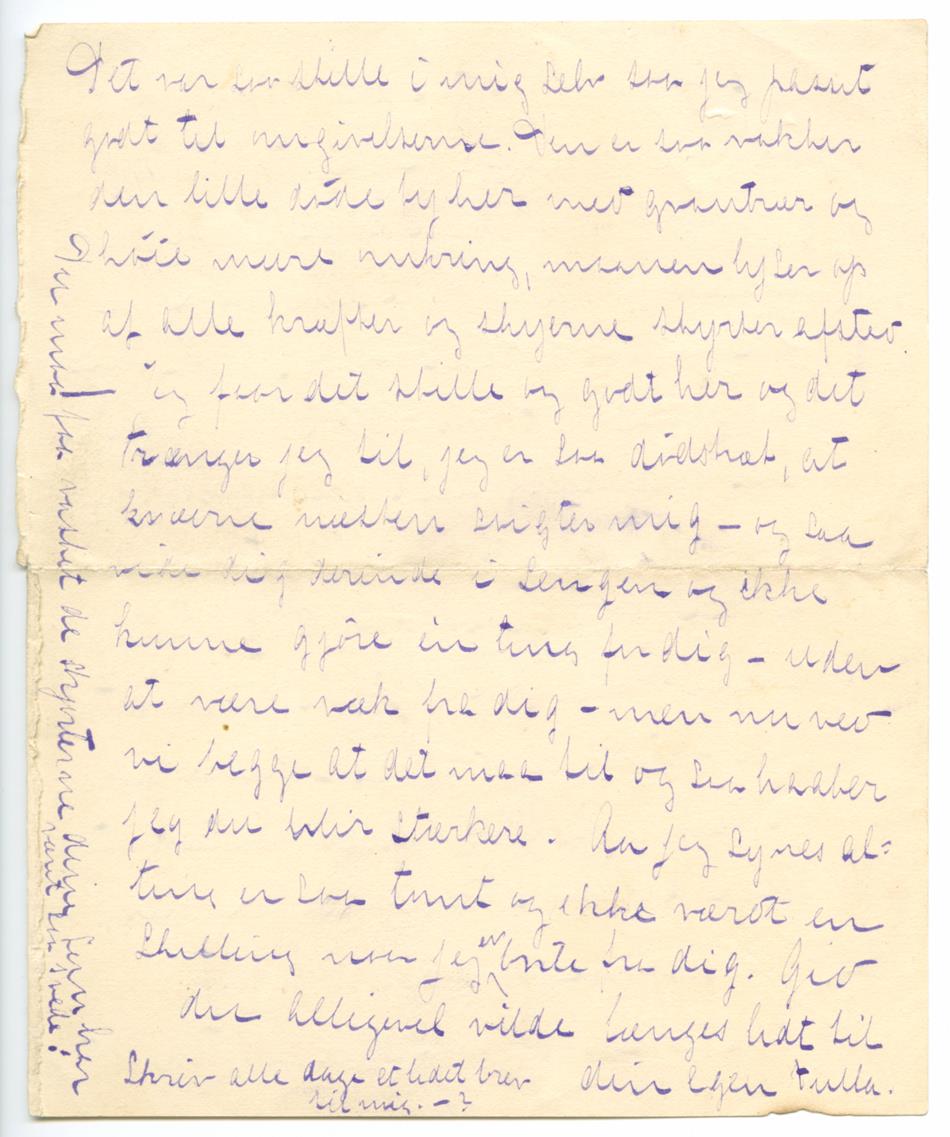 Det var saa stille i mig selv saa jeg passet
godt til omgivelserne. Den er saa vakker
den lille døde by her med grantrær og
høie mure omkring, maanen lyser op
af alle kræfter og skyerne styrter afsted.
Jeg faar det stille og godt her og det
trænger jeg til, jeg er saa dødstræt, at
knæerne næsten svigter mig – og saa
vide dig derinde i sengen og ikke
kunne gjøre én ting for dig – uden
at være væk fra dig – men nu ved
vi begge at det maa til og saa haaber
jeg du blir stærkere. Aa jeg synes al=
ting er saa tomt og ikke værdt en
skilling naar jeg er borte fra dig. Gid
du alligevel vilde længes lidt til
din egen Tulla.
Skriv alle dage et lidet brev
til mig. – ?
Du maa faa vasket de skjorterne dine som har
været saa svede!